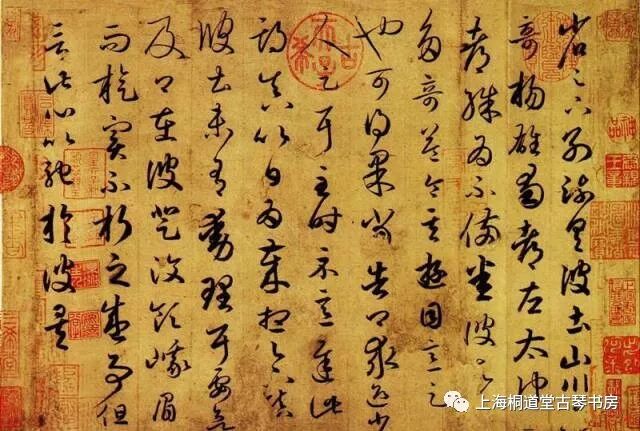 省足下別疏具彼土山川
奇揚雄蜀都左太沖
都殊為不備悉彼故
多奇益令其遊目意足
也可得果當告卿求迎少
人足耳至時示意遲此
期真以日為歲想足下鎮
彼土未有動理耳要欲
及卿在彼登汶領峨眉
而旋實不朽之盛事但
言此心以馳於彼矣
古希天子
上海桐道堂古琴书房